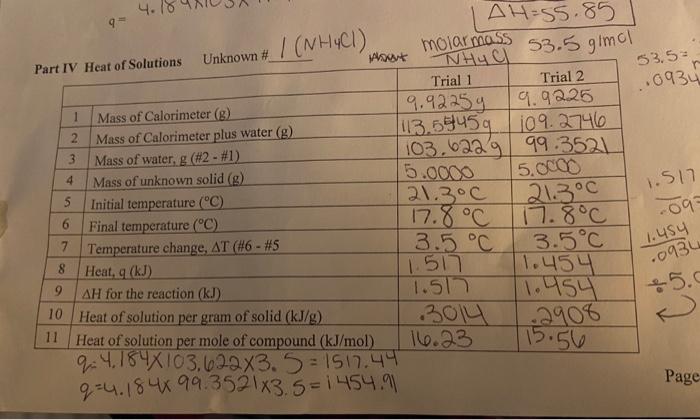 4.184X103X
q=
ΔH=55.85
Part IV Heat of Solutions Unknown # 1 (NH4Cl) molar mass NH4Cl 53.5 g/mol
53.5=
.0934
Trial 1 Trial 2
1 Mass of Calorimeter (g) 9.9225g 9.9225
2 Mass of Calorimeter plus water (g) 113.5445g 109.2746
3 Mass of water, g (#2 - #1) 103.622g 99.3521
4 Mass of unknown solid (g) 5.0000 5.0000
5 Initial temperature (°C) 21.3°C 21.3°C
6 Final temperature (°C) 17.8°C 17.8°C
7 Temperature change, ΔT (#6 - #5 3.5 °C 3.5°C
8 Heat, q (kJ) 1.517 1.454
9 ΔH for the reaction (kJ) 1.517 1.454
10 Heat of solution per gram of solid (kJ/g) .3014 .2908
11 Heat of solution per mole of compound (kJ/mol) 16.23 15.56
1.517
.093
1.454
.0934
÷5.0
q=4.184X103.622X3.5=1517.44
q=4.184X99.3521X3.5=1454.91
Page